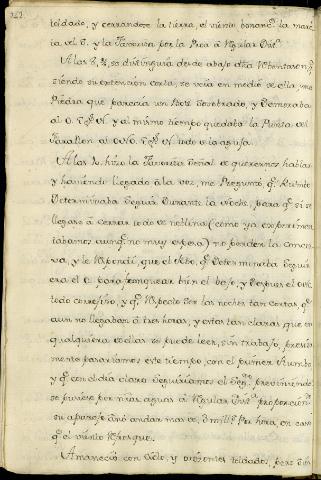 toldado, y cerrandose la tierra, el viento bonancible la marcha
al O. y la Favorita por la Proa á Regular Distª.
A las 8 ¾, se distinguia desde abajo
siendo su extension corta, se veia en medio de ella, una
Piedra que parecia un Bote Zozobrado, y Demoraba
al O. y al mismo tiempo quedaba la Punta del
Farallon al todo de la aguja.
A las hizo la Favorita Señal de querernos hablar
y haviendo llegado á la voz, me Preguntó qe. Rumbo
Determinaba Seguir Durante la Noche, para qe. si se
llegase á cerrar todo de neblina (como ya experimen
tabamos aunqe. no muy espesa) no perder la conser
va, y le Respondí, que el Rbo. qe. Determinaba Seguir
era el para franquear bien el bajo, y Despues el
todo corregido, y qe. Respecto ser las noches tan cortas qe.
aun no llegaban á tres horas, y estas tan claras que en
qualquiera de ellas se puede leer, sin trabajo, pron
mente pasariamos este tiempo, con el primer Rumbo
y qe. con el dia claro Seguiriamos el Segdo. previniendo
se pusiese por mis aguas á Regular Distª. proporcion
su aparejo á no andar mas de 3 mills. Por hora, en caso
qe. el viento Refresque.
Amaneció con Cielo, y orizontes toldados, pero sin